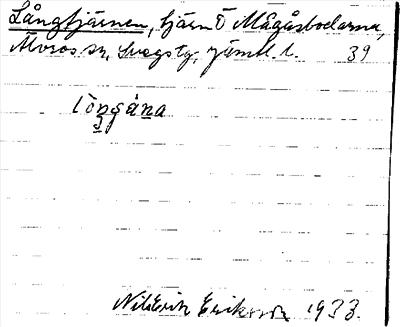 Långtjärnen, tjärn Ö Mågåsbodarna,
Åsarne sn, Svegs tg. Jämtl. l. 39
lòngána
Nils Erik Eriksson 1933.